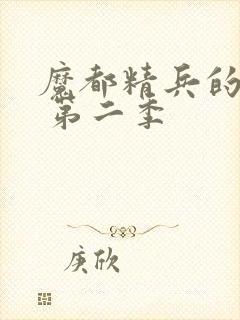 魔都精兵的
第二季
庚欣